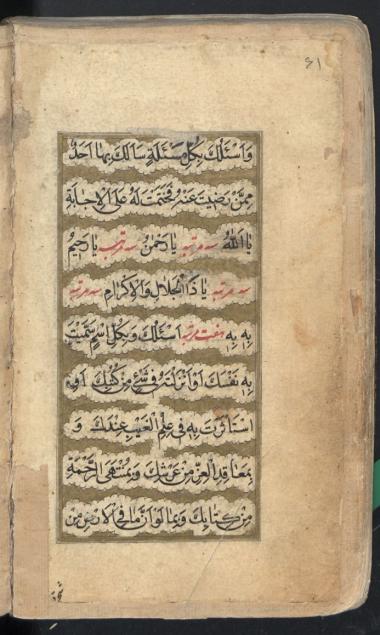 ۶۱
وَاَسْئَلُكَ بِكُلِّ مَسْئَلَةٍ سَالَكَ بِهَا اَحَدٌ
مِمَّنْ رَضِيتَ عَنْهُ فَخَتَمْتَ لَهُ عَلَى الْاِجَابَةِ
يَا اَللّٰهُ سه مرتبه يَا رَحْمٰنُ سه مرتبه يَا رَحِيمُ
سه مرتبه يَا ذَا الْجَلَالِ وَالْاِكْرَامِ سه مرتبه
بِهِ بِهِ هفت مرتبه اَسْئَلُكَ وَبِكُلِّ اسْمٍ سَمَّيْتَ
بِهِ نَفْسَكَ اَوْ اَنْزَلْتَهُ فِى شَىْءٍ مِنْ كُتُبِكَ اَوِ
اسْتَاثَرْتَ بِهِ فِى عِلْمِ الْغَيْبِ عِنْدَكَ وَ
بِمَعَاقِدِ الْعِزِّ مِنْ عَرْشِكَ وَبِمُنْتَهَى الرَّحْمَةِ
مِنْ كِتَابِكَ وَبِمَا لَوْ اَنَّ مَا فِى الْاَرْضِ مِنْ